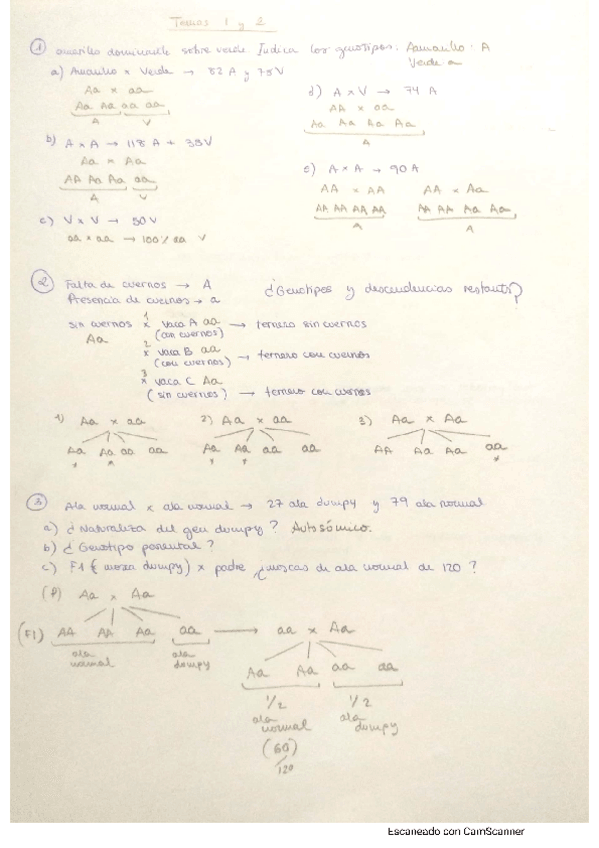 Temas 1 y 2
① amarillo dominante sobre verde. Indica los genotipos. Amarillo: A
Verde a
a) Amarillo x Verde → 82 A y 78 V
Aa x aa
Aa Aa aa aa
A V
b) A x A → 118 A + 39 V
Aa x Aa
AA Aa Aa aa
A V
c) V x V → 50 V
aa x aa → 100% aa V
d) A x V → 74 A
AA x aa
Aa Aa Aa Aa
A
e) A x A → 90 A
AA x AA AA x Aa
AA AA AA AA AA AA Aa Aa
A A
② Falta de cuernos → A ¿Genotipos y descendencias restants?
Presencia de cuernos → a
sin cuernos 1 x vaca A aa → ternero sin cuernos
Aa (con cuernos)
2 x vaca B aa → ternero con cuernos
(con cuernos)
3 x vaca C Aa → ternero con cuernos
(sin cuernos)
1) Aa x aa 2) Aa x aa 3) Aa x Aa
Aa Aa aa aa Aa Aa aa aa AA Aa Aa aa
③ Ala normal x ala normal → 27 ala dumpy y 79 ala normal
a) ¿Naturaleza del gen dumpy? Autosómico.
b) ¿Genotipo parental?
c) F1 (mosca dumpy) x padre ¿moscas de ala normal de 120?
(P) Aa x Aa
(F1) AA AA Aa aa → aa x Aa
ala normal ala dumpy
Aa Aa aa aa
1/2 1/2
ala normal ala dumpy
(60)
/120
Escaneado con CamScanner